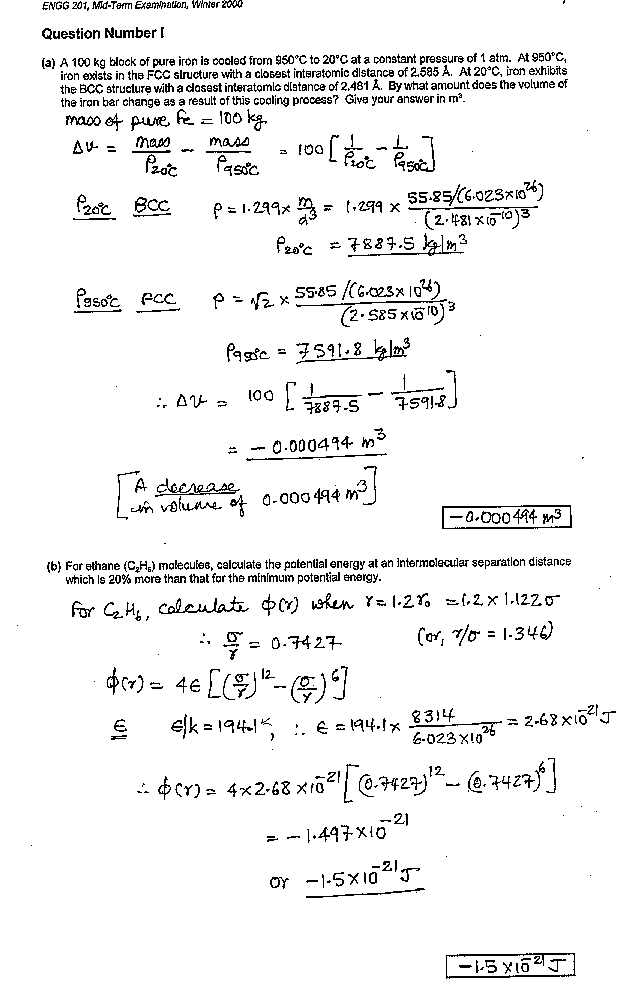 ENGG 201, Mid-Term Examination, Winter 2000
Question Number I
(a) A 100 kg block of pure iron is cooled from 950°C to 20°C at a constant pressure of 1 atm. At 950°C,
iron exists in the FCC structure with a closest interatomic distance of 2.585 Å. At 20°C, iron exhibits
the BCC structure with a closest interatomic distance of 2.481 Å. By what amount does the volume of
the iron bar change as a result of this cooling process? Give your answer in m³.
mass of pure Fe = 100 kg.
ΔV = mass/ρ20°C − mass/ρ950°C = 100 [1/ρ20°C − 1/ρ950°C]
ρ20°C BCC ρ = 1.299 × m/d³ = 1.299 × 55.85/(6.023×10²⁶)/(2.481×10⁻¹⁰)³
ρ20°C = 7887.5 kg/m³
ρ950°C FCC ρ = √2 × 55.85/(6.023×10²⁶)/(2.585×10⁻¹⁰)³
ρ950°C = 7591.8 kg/m³
∴ ΔV = 100 [1/7887.5 − 1/7591.8]
= −0.000494 m³
[A decrease
in volume of 0.000494 m³]
−0.000494 m³
(b) For ethane (C₂H₆) molecules, calculate the potential energy at an intermolecular separation distance
which is 20% more than that for the minimum potential energy.
For C₂H₆, calculate φ(r) when r = 1.2r₀ = 1.2 × 1.122σ
∴ σ/r = 0.7427 (or, r/σ = 1.346)
φ(r) = 4ϵ [(σ/r)¹² − (σ/r)⁶]
ϵ ϵ/k = 194.1 K, ∴ ϵ = 194.1 × 8314/6.023×10²⁶ = 2.68×10⁻²¹ J
∴ φ(r) = 4×2.68×10⁻²¹ [(0.7427)¹² − (0.7427)⁶]
= −1.497×10⁻²¹
or −1.5×10⁻²¹ J
−1.5×10⁻²¹ J